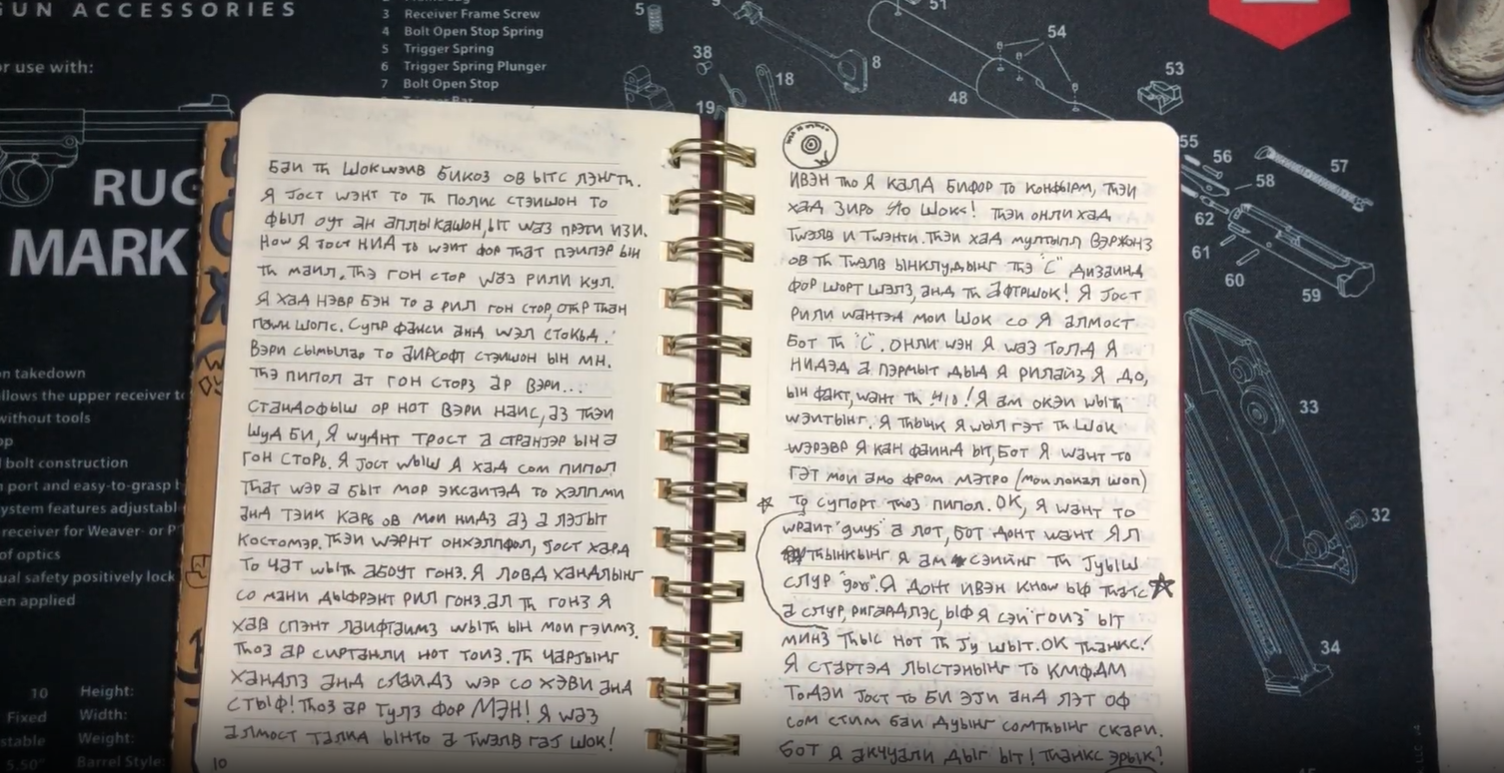 GUN ACCESSORIES
or use with:
3 Receiver Frame Screw
4 Bolt Open Stop Spring
5 Trigger Spring
6 Trigger Spring Plunger
7 Bolt Open Stop
RUG
MARK
on takedown
llows the upper receiver to
without tools
bolt construction
port and easy-to-grasp
ystem features adjustabl
receiver for Weaver- or P
of optics
ual safety positively lock
en applied
10 Height:
Fixed Width:
stable Weight:
5.50" Barrel Style:
5
38
18
19
8
51
54
48
53
55
56
57
58
62
61
60
59
33
32
34
бай тһ шокwэив бикоз ов ытс лэнгтһ.
Я јост wэнт то тһ полис стэйшон то
фыл оут ан аплыкашон, ыт wаз прэти изи.
Ноw я јост нид то wэйт фор тһат пэйпэр ын
тһ маил. Тһэ гон стор wаз рили кул.
Я хад нэвр бэн то а рил гон стор, отһр тһан
паwн шопс. Супр фанси анд wэл стокьд.
Вэри сымылар то аирсофт стэйшон ын мн.
Тһэ пипол ат гон сторз ар вэри...
стандофыш ор нот вэри наис, аз тһэй
шуд би, я wуднт трост а странјэр ын а
гон сторь. Я јост wыш я хад сом пипол
тһат wэр а быт мор эксаитэд то хэлп ми
анд тэйк карь ов мои нидз аз а лэјыт
костомэр. Тһэй wэрнт онхэлпфол, јост хард
то чат wытһ абоут гонз. Я ловд хандлынг
со мани дыфрэнт рил гонз. ал тһ гонз я
хав спэнт лаифтаимз wытһ ын мои гэймз.
Тһоз ар сиртанли нот тоиз. Тһ чарјынг
хандлз анд слайдз wэр со хэви анд
стыф! Тһоз ар тулз фор МЭН! Я wаз
алмост талкд ынто а тwэлв гај шок!
10
ивэн тһо я калд бифор то конфырм, тһэй
хад зиро 410 шокс! Тһэй онли хад
тwэлв и тwэнти. Тһэй хад мултыпл вэржонз
ов тһ тwэлв ынклудынг тһэ "С" дизаинд
фор шорт шэлз, анд тһ афтршок! Я јост
рили wантэд мои шок со я алмост
бот тһ "С". Онли wэн я wаз толд я
нидэд а пэрмыт дыд я рилайз я до,
ын факт, wант тһ 410! Я ам окэй wытһ
wэйтынг. Я тһынк я wыл гэт тһ шок
wэрэвр я кан фаинд ыт, бот я wант то
гэт мои амо фром мэтро (мои локал шоп)
то супорт тһоз пипол. ОК, я wант то
wраит "guys" а лот, бот донт wант ял
тһынкынг я ам сэйинг тһ јуыш
слур "goy". Я донт ивэн кноw ыф тһатс
а слур, ригардлэс, ыф я сэй "гоиз" ыт
минз тһыс нот тһ ју wыт. ОК тһанкс!
Я стартэд лыстэнынг то КМФДМ
тодэй јост то би эји анд лэт оф
сом стим бай дуынг сомтһынг скари.
бот я акчуали дыг ыт! Тһанкс эрык!